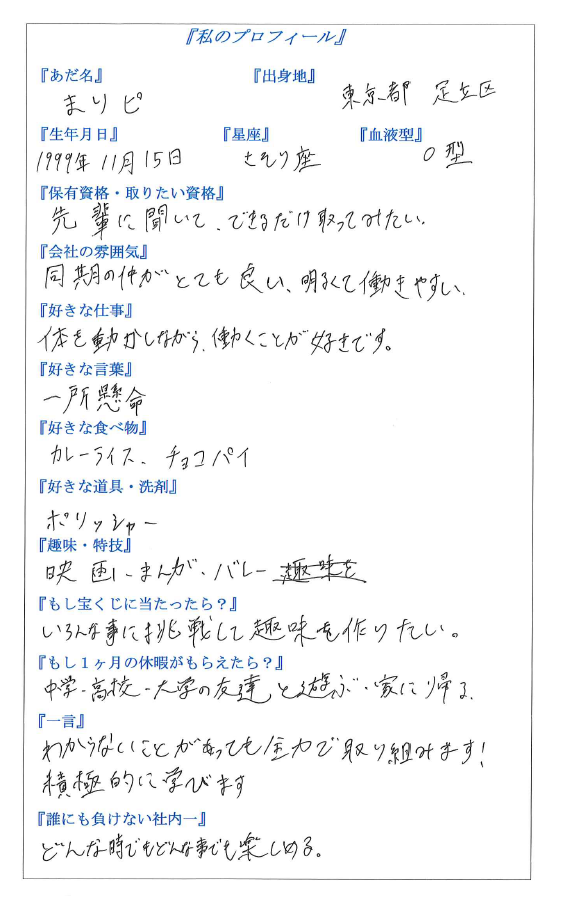 『私のプロフィール』
『あだ名』 『出身地』
まりピ 東京都 足立区
『生年月日』 『星座』 『血液型』
1999年11月15日 さそり座 O型
『保有資格・取りたい資格』
先輩に聞いて、できるだけ取ってみたい。
『会社の雰囲気』
同期の仲がとても良い、明るくて働きやすい。
『好きな仕事』
体を動かしながら、働くことが好きです。
『好きな言葉』
一所懸命
『好きな食べ物』
カレーライス、チョコパイ
『好きな道具・洗剤』
ポリッシャー
『趣味・特技』
映画、まんが、バレー 趣味を
『もし宝くじに当たったら？』
いろんな事に挑戦して趣味を作りたい。
『もし１ヶ月の休暇がもらえたら？』
中学・高校・大学の友達と遊ぶ・家に帰る。
『一言』
わからないことがあっても全力で取り組みます！
積極的に学びます
『誰にも負けない社内一』
どんな時でもどんな事でも楽しめる。